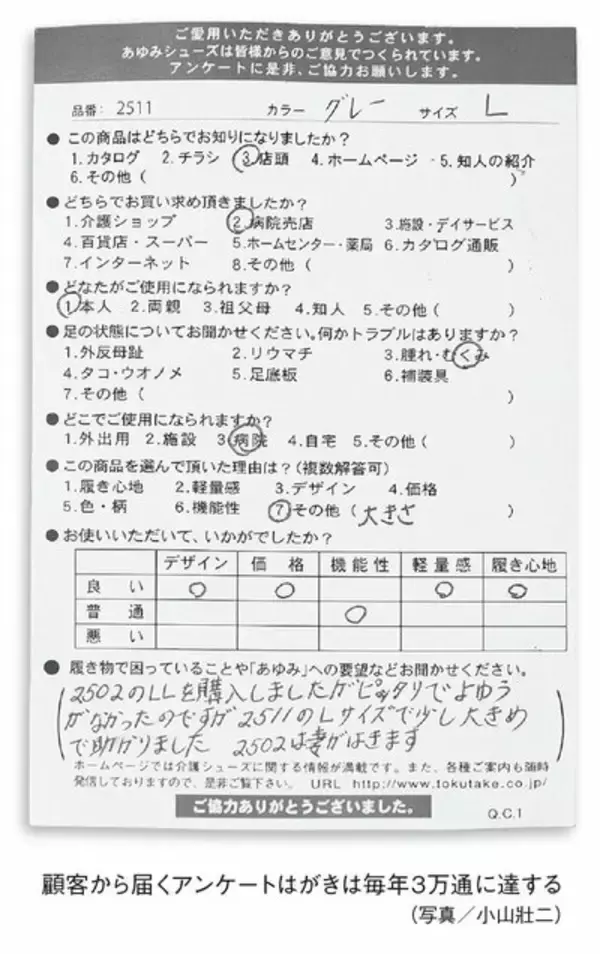 ご愛用いただきありがとうございます。
あゆみシューズは皆様からのご意見でつくられています。
アンケートに是非、ご協力お願いします。
品番: 2511 カラー グレー サイズ L
●この商品はどちらでお知りになりましたか?
1.カタログ 2.チラシ 3.店頭 4.ホームページ ・5.知人の紹介
6.その他( )
●どちらでお買い求め頂きましたか?
1.介護ショップ 2.病院売店 3.施設・デイサービス
4.百貨店・スーパー 5.ホームセンター・薬局 6.カタログ通販
7.インターネット 8.その他( )
●どなたがご使用になられますか?
1.本人 2.両親 3.祖父母 4.知人 5.その他( )
●足の状態についてお聞かせください。何かトラブルはありますか?
1.外反母趾 2.リウマチ 3.腫れ・むくみ
4.タコ・ウオノメ 5.足底板 6.補装具
7.その他( )
●どこでご使用になられますか?
1.外出用 2.施設 3.病院 4.自宅 5.その他( )
●この商品を選んで頂いた理由は?(複数解答可)
1.履き心地 2.軽量感 3.デザイン 4.価格
5.色・柄 6.機能性 7.その他(大きさ )
●お使いいただいて、いかがでしたか?
デザイン 価格 機能性 軽量感 履き心地
良い ○ ○ ○ ○
普通 ○
悪い
●履き物で困っていることや「あゆみ」への要望などお聞かせください。
(2502のLLを購入しましたがピッタリでよゆう
がなかったのですが2511のLサイズで少し大きめ
で助かりました 2502は妻がはきます)
ホームページでは介護シューズに関する情報が満載です。また、各種ご案内も随時
発信しておりますので、是非ご覧下さい。 URL http://www.tokutake.co.jp/
ご協力ありがとうございました。
Q.C.1
顧客から届くアンケートはがきは毎年3万通に達する
(写真/小山壯二)